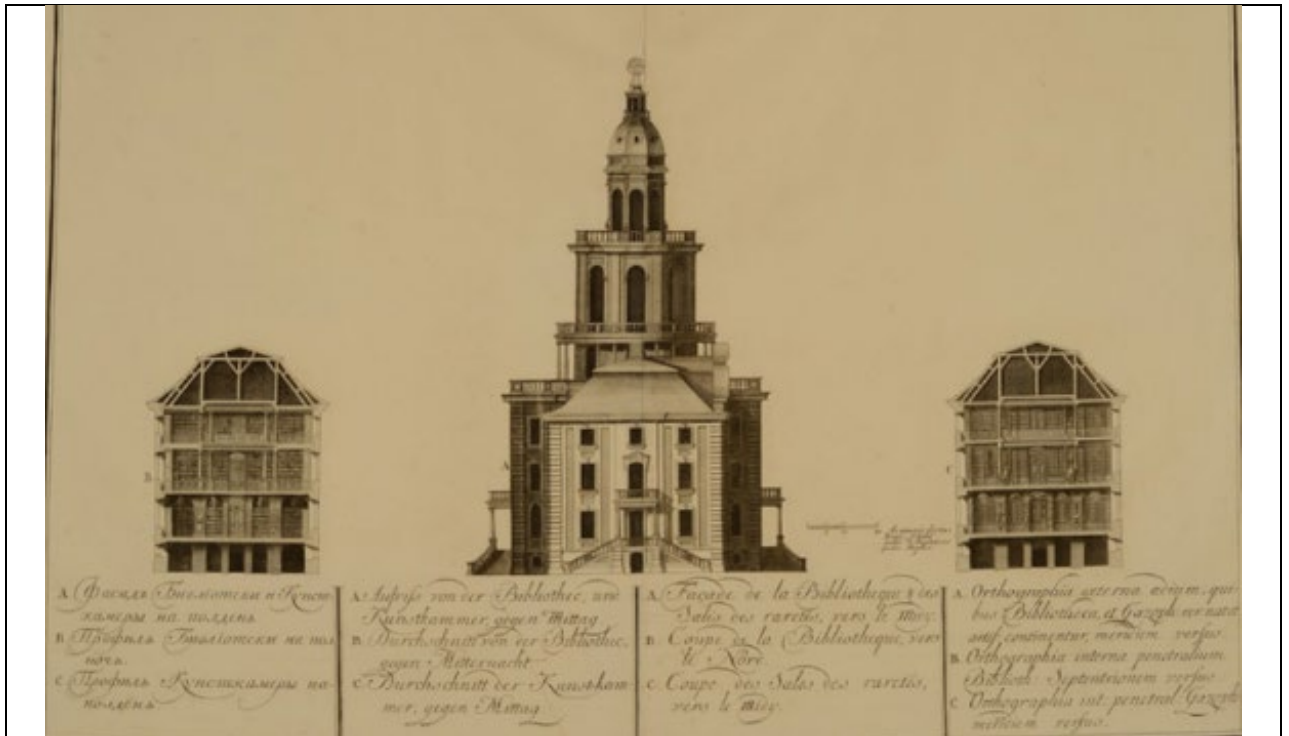 B
A
C
A. Фасадъ Библиотеки и Кунст-
камеры на полдень
B. Профиль Библиотеки на пол
ночь.
C. Профиль Кунсткамеры на
полдень.
A. Aufriss von der Bibliothec, und
Kunstkammer, gegen Mittag
B. Durchschnitt von der Bibliothec,
gegen Mitternacht
C. Durchschnitt der Kunstkam-
mer, gegen Mittag
A. Façade de la Bibliotheque & des
Salès des raretés, vers le Midy.
B. Coupe de la Bibliotheque, vers
le Nord
C. Coupe des Salès des raretés,
vers le Midy.
A. Orthographia externa ædium, qui-
bus Bibliotheca, et Gazoph. rer. natur.
continentur, meridiem versus
B. Orthographia interna penetralium
Biblioth. Septentrionem versus
C. Orthographia int. penetral. Gazoph.
meridiem versus.